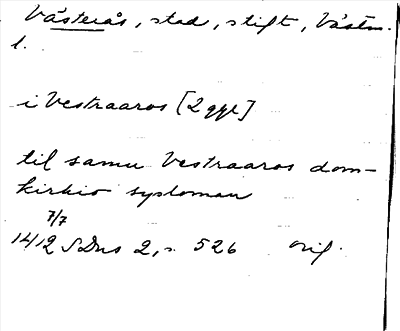 Västerås, stad, stift, Västm.
l.
i Vestraaros [2 ggr]
til samu Vestraaros dom-
kirkio sysloman
7/7
1412 SDns 2, s. 526 orig.